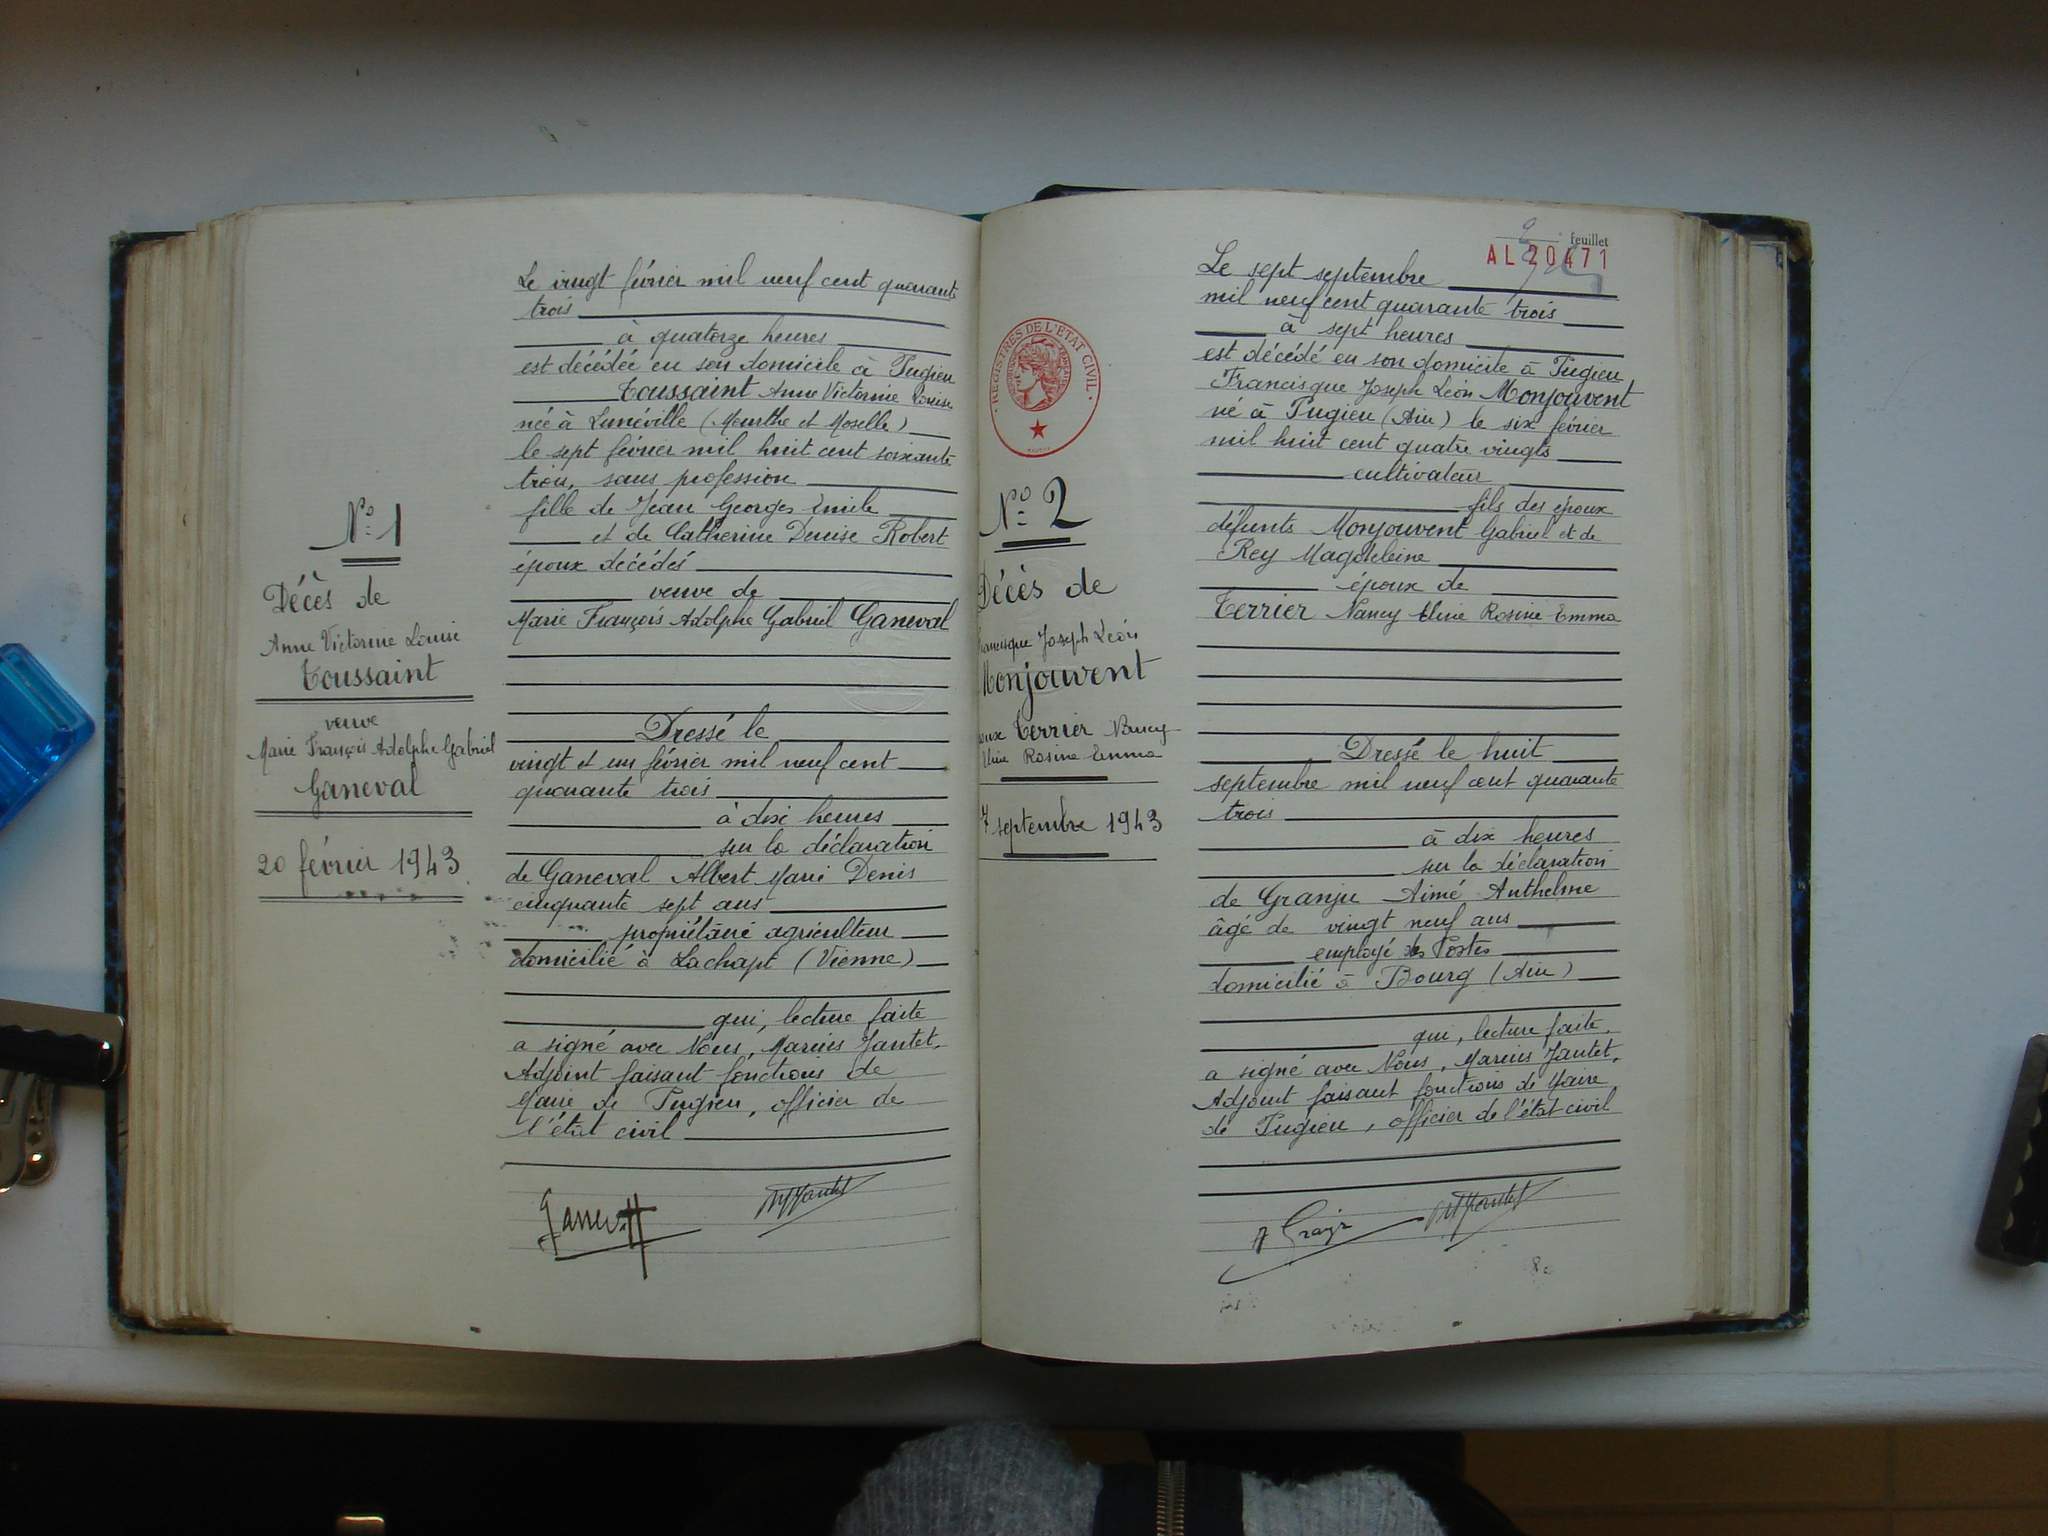 N° 1
Décès de
Anne Victorine Louise
Toussaint
veuve
Marie François Adolphe Gabriel
Ganeval
20 février 1943
Le vingt février mil neuf cent quarante
trois
à quatorze heures
est décédée en son domicile à Pugieu
Toussaint Anne Victorine Louise
née à Lunéville (Meurthe et Moselle)
le sept février mil huit cent soixante
trois, sans profession
fille de Jean Georges Emile
et de Catherine Denise Robert
époux décédés
veuve de
Marie François Adolphe Gabriel Ganeval
Dressé le
vingt et un février mil neuf cent
quarante trois
à dix heures
sur la déclaration
de Ganeval Albert Marie Denis
cinquante sept ans
propriétaire agriculteur
domicilié à Lachapt (Vienne)
qui, lecture faite
a signé avec Nous, Marius Jantet,
Adjoint faisant fonctions de
Maire de Pugieu, officier de
l'état civil
feuillet
AL 20471
REGISTRES DE L'ÉTAT CIVIL
N° 2
Décès de
Francisque Joseph Léon
Monjouvent
Terrier Nancy
Eline Rosine Emma
7 septembre 1943
Le sept septembre
mil neuf cent quarante trois
à sept heures
est décédé en son domicile à Pugieu
Francisque Joseph Léon Monjouvent
né à Pugieu (Ain) le six février
mil huit cent quatre vingts
cultivateur
fils des époux
défunts Monjouvent Gabriel et de
Rey Magdeleine
époux de
Terrier Nancy Eline Rosine Emma
Dressé le huit
septembre mil neuf cent quarante
trois
à dix heures
sur la déclaration
de Granju Aimé Anthelme
âgé de vingt neuf ans
employé des Postes
domicilié à Bourg (Ain)
qui, lecture faite,
a signé avec Nous, Marius Jantet,
Adjoint faisant fonctions de Maire
de Pugieu, officier de l'état civil